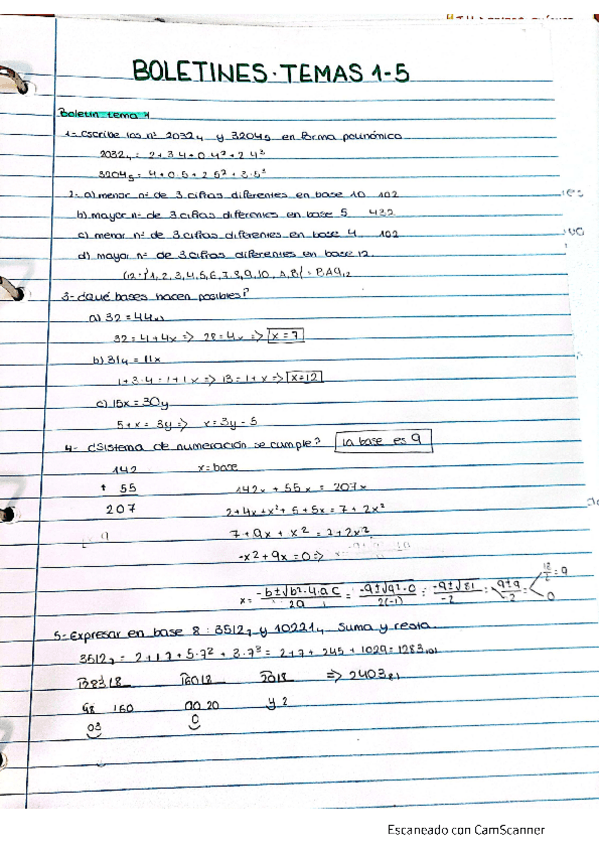 BOLETINES · TEMAS 1-5
Boletín tema 1
1- Escribe los nº 2032₄ y 3204₅ en forma polinómica
2032₄ = 2+3·4+0·4²+2·4³
3204₅ = 4+0·5+2·5²+3·5³
2- a) menor nº de 3 cifras diferentes en base 10 102
b) mayor nº de 3 cifras diferentes en base 5 432
c) menor nº de 3 cifras diferentes en base 4 102
d) mayor nº de 3 cifras diferentes en base 12.
3- ¿Qué bases hacen posibles?
a) 32 = 44ₓ
32 = 4+4x => 28 = 4x => x = 7
b) 31₄ = 11x
1+3·4 = 1+1x => 13 = 1+x => x=12
c) 15x = 30y
5+x = 3y => x = 3y - 5
4- ¿Sistema de numeración se cumple? la base es 9
142 x = base
+ 55 142ₓ + 55ₓ = 207ₓ
207 2+4x+x²+5+5x = 7+2x²
7+9x+x² = 7+2x²
-x²+9x = 0 =>
x = -b±√b²-4·a·c / 2a = -9±√9²-0 / 2(-1) = -9±√81 / -2 = 9±9 / -2 = 9
0
5- Expresar en base 8 : 3512₇ y 10221₄ Suma y resta.
3512₇ = 2+1·7+5·7²+3·7³ = 2+7+245+1029 = 1283
=> 2403₈
03 0
Escaneado con CamScanner